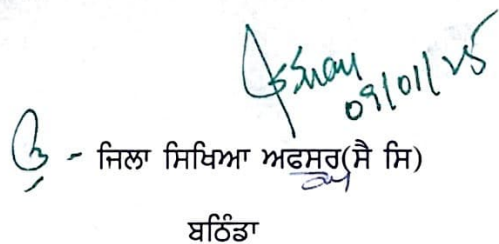 09/01/25
- ਜਿਲਾ ਸਿਖਿਆ ਅਫਸਰ(ਸੈ ਸਿ)
ਬਠਿੰਡਾ